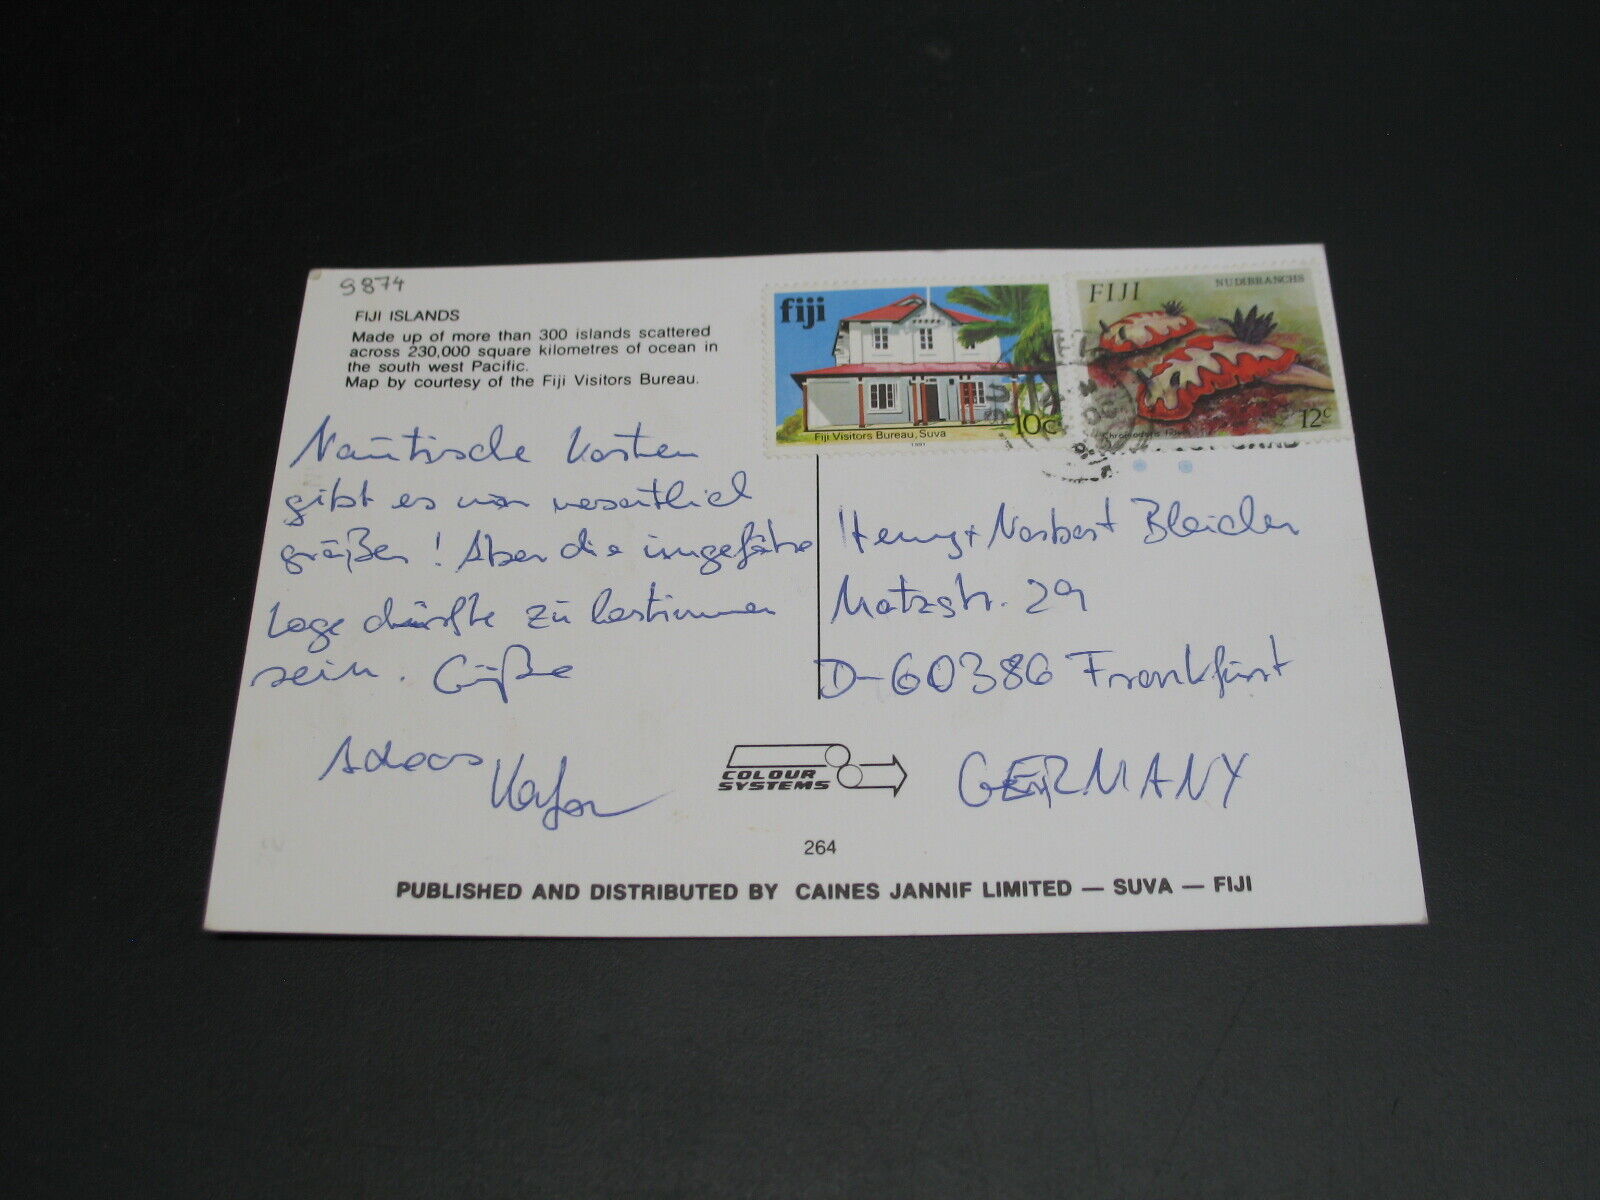 9874
FIJI ISLANDS
Made up of more than 300 islands scattered
across 230,000 square kilometres of ocean in
the south west Pacific.
Map by courtesy of the Fiji Visitors Bureau.
fiji
Fiji Visitors Bureau, Suva
1991
10c
FIJI
NUDIBRANCHS
12c
Nautische Karten
gibt es nur wesentlich
größer! Aber die ungefähre
Lage dürfte zu bestimmen
sein. Grüße
Henny + Norbert Bleicher
Matzstr. 29
D-60386 Frankfurt
GERMANY
COLOUR
SYSTEMS
264
PUBLISHED AND DISTRIBUTED BY CAINES JANNIF LIMITED — SUVA — FIJI